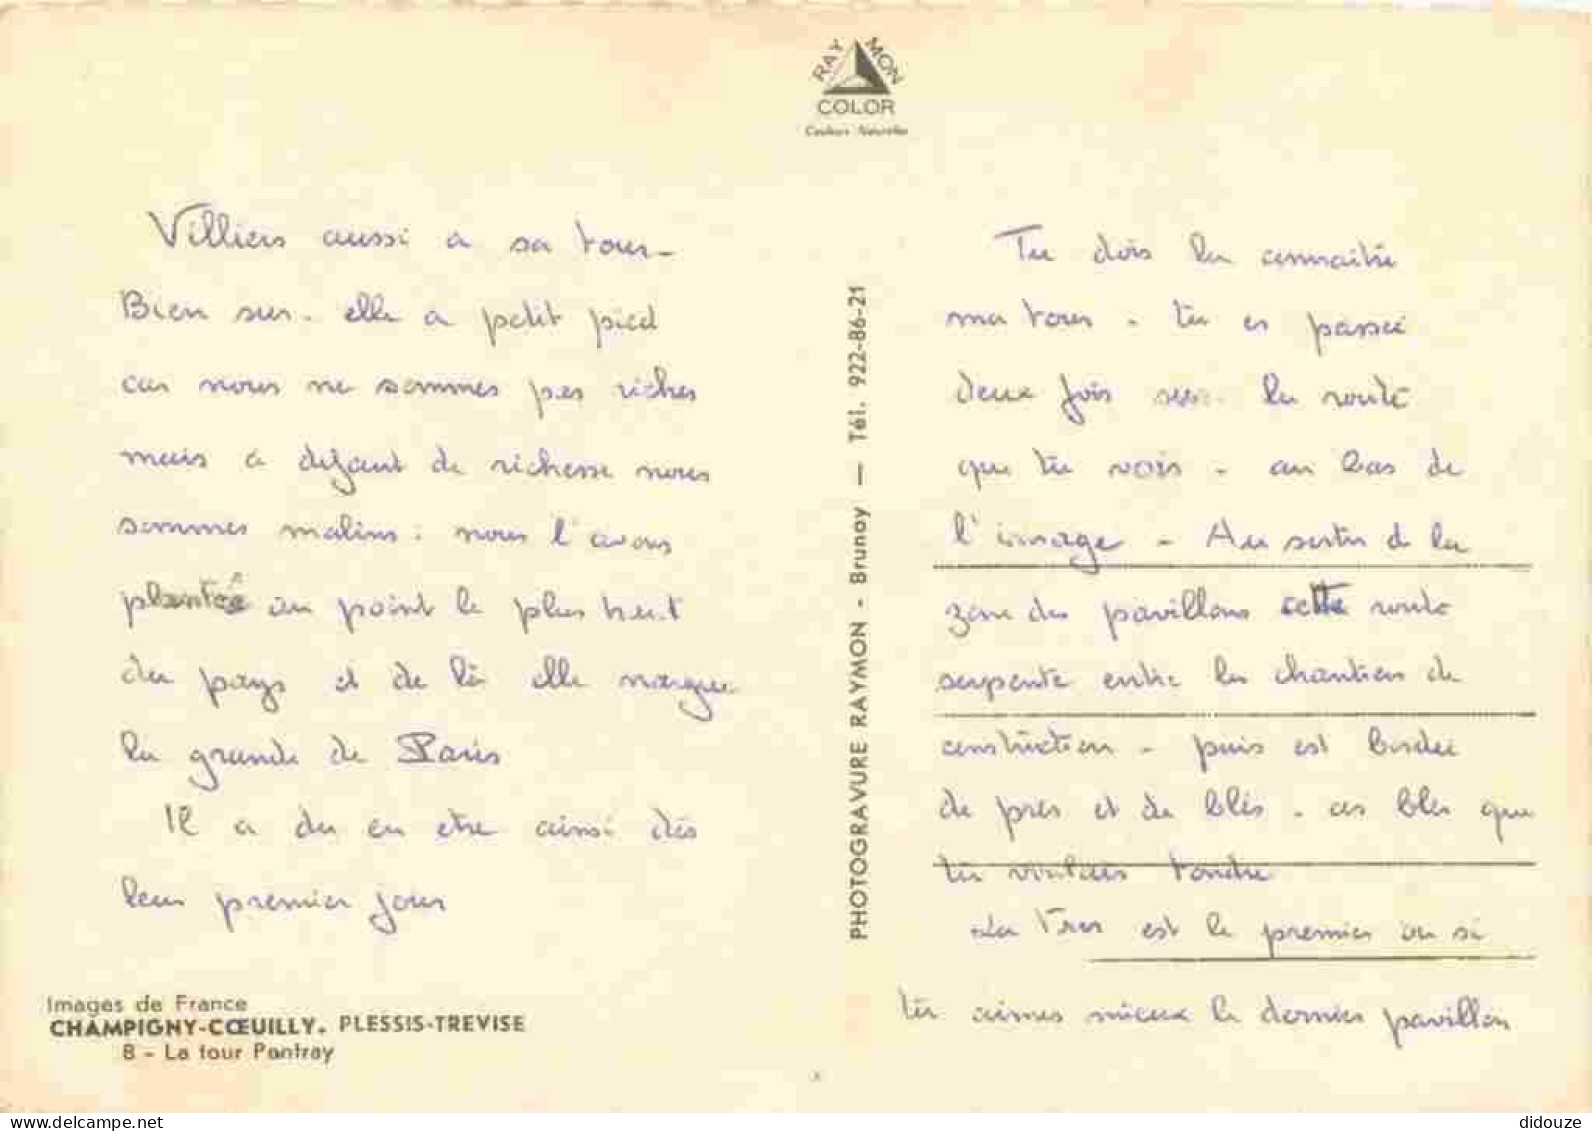 RAYMON
COLOR
Couleurs Naturelles
Villiers aussi a sa tour -
Bien sur - elle a petit pied
car nous ne sommes pas riches
mais a defaut de richesse nous
sommes malins : nous l'avons
plantée au point le plus haut
du pays et de là elle nargue
la grande de Paris
Il a du en etre ainsi dès
leur premier jour
Images de France
CHAMPIGNY-CŒUILLY. PLESSIS-TREVISE
8 - La tour Pantray
PHOTOGRAVURE RAYMON - Brunoy — Tél. 922-86-21
Tu dois la connaitre
ma tour - tu es passé
deux fois sur la route
que tu vois - au bas de
l'image - Au sortir de la
zone des pavillons cette route
serpente entre les chantiers de
construction - puis est bordée
de pres et de blés - ces bles que
tu voulais tondre
La est le premier ou si
tu aimes mieux le dernier pavillon
www.delcampe.net
didouze